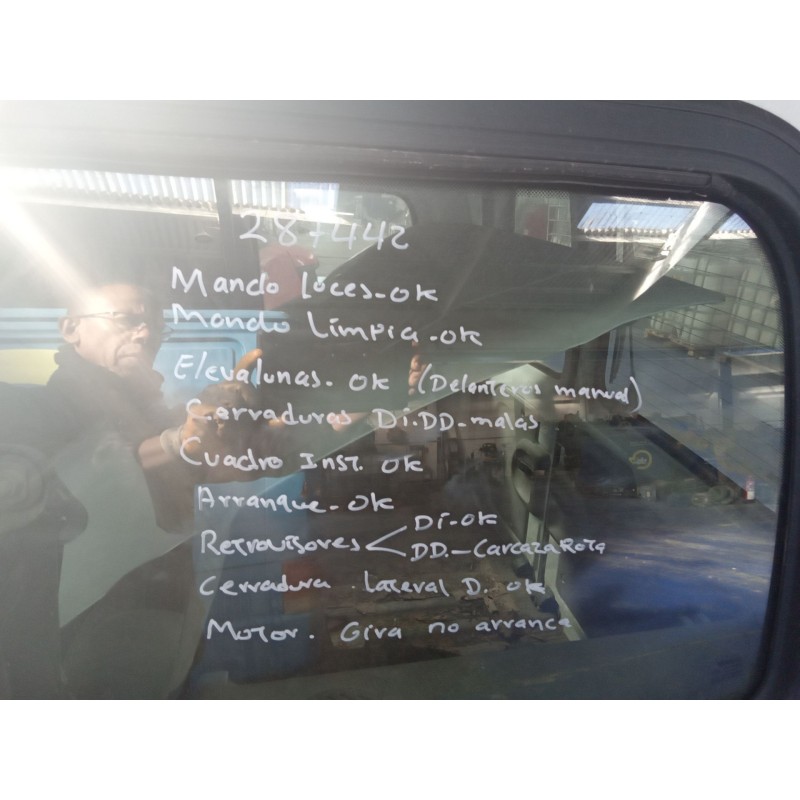 287442
Mando loces-ok
Mando Limpia-ok
Elevalunas. ok (Delanteros manual)
Cerraduras Di.DD-malas
Cuadro Inst. ok
Arranque-ok
Retrovisores < Di-ok
DD.-Carcaza Rota
Cerradura. Lateral D. ok
Motor. Gira no arranca